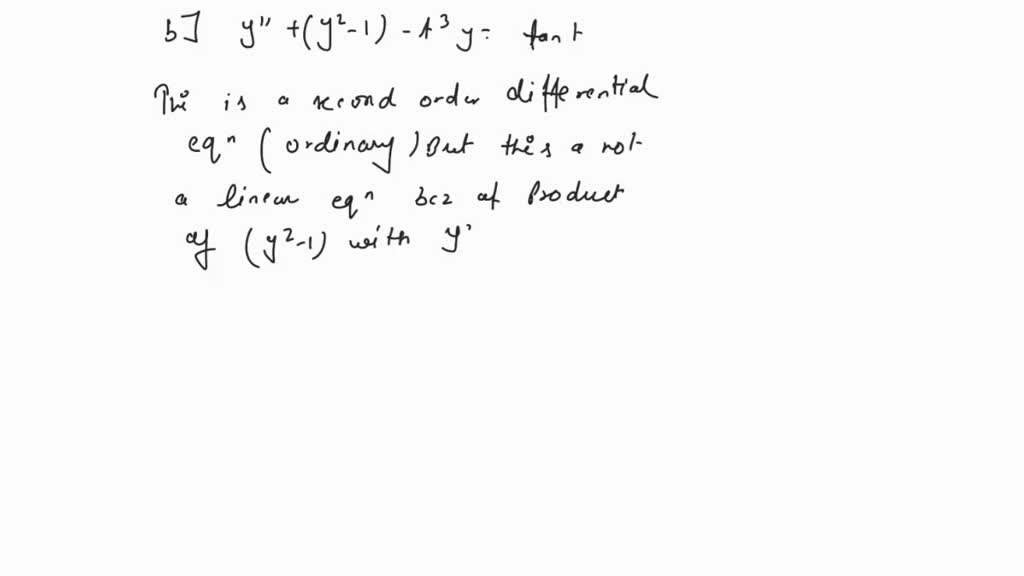 b] y" + (y²-1) - t³ y = tant
This is a second order differential
eqⁿ (ordinary) But this a not
a linear eqⁿ bcz of Product
of (y²-1) with y'